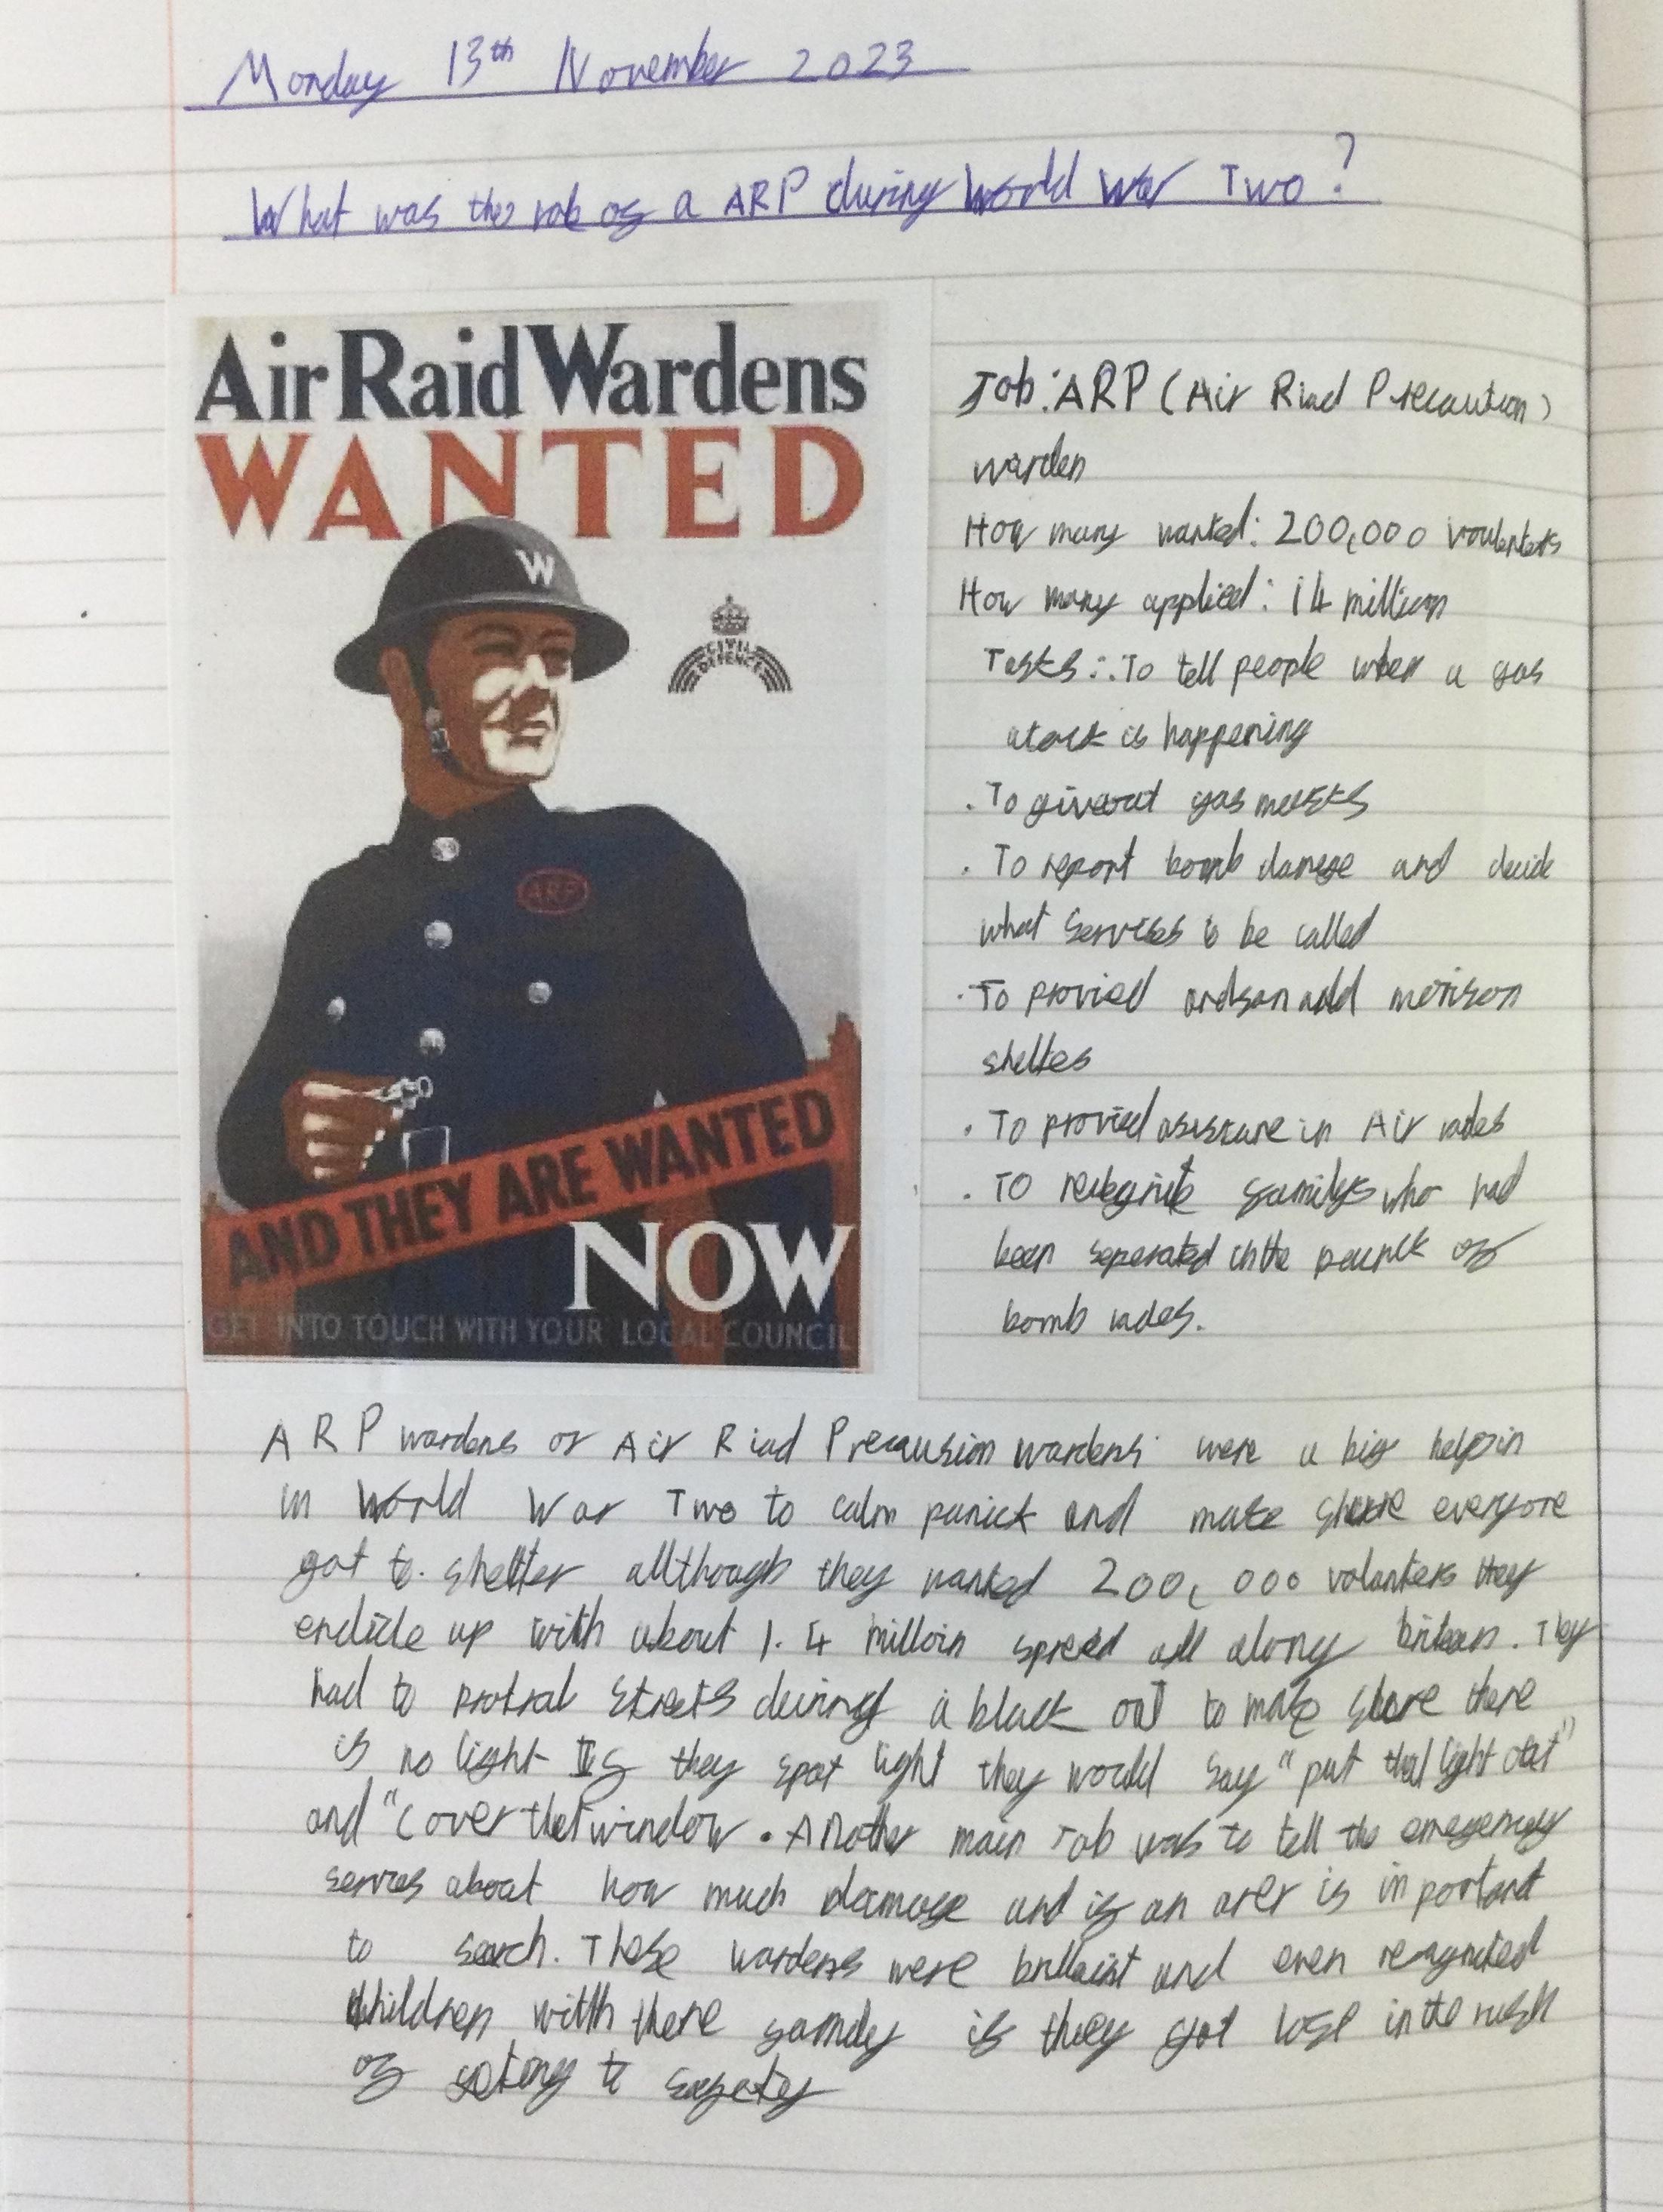 Monday 13th November 2023
What was the role of a ARP during World War Two?
Air Raid Wardens
WANTED
W
CIVIL
DEFENCE
ARP
AND THEY ARE WANTED
NOW
GET INTO TOUCH WITH YOUR LOCAL COUNCIL
Job: ARP (Air Riad Precaution)
warden
How many wanted: 200,000
How many applied: 14 million
Tasks: To tell people when a gas
atack is happening
. To giveout gas masks
. To report bomb damage and decide
what servises to be called
. To provied andsan add morison
. To provied in Air rades
. To familys who had
been seperated in the panick of
bomb rades.
ARP wardens or Air Riad Precausion wardens were a big help in
in World War Two to calm panick and make shore everyone
got to shelter allthough they wanted 200,000 volanters they
endide up with about 1.4 milloin spread all along britan. They
had to protral streets during a black out to make shore there
is no light If they spot light they would say "put that light out"
and "Cover that window. Another main Job was to tell the emergency
servies about how much damage and if an arer is inportant
to search. These wardens were and even
children with there famaly if they got lost in the rush
of geting to